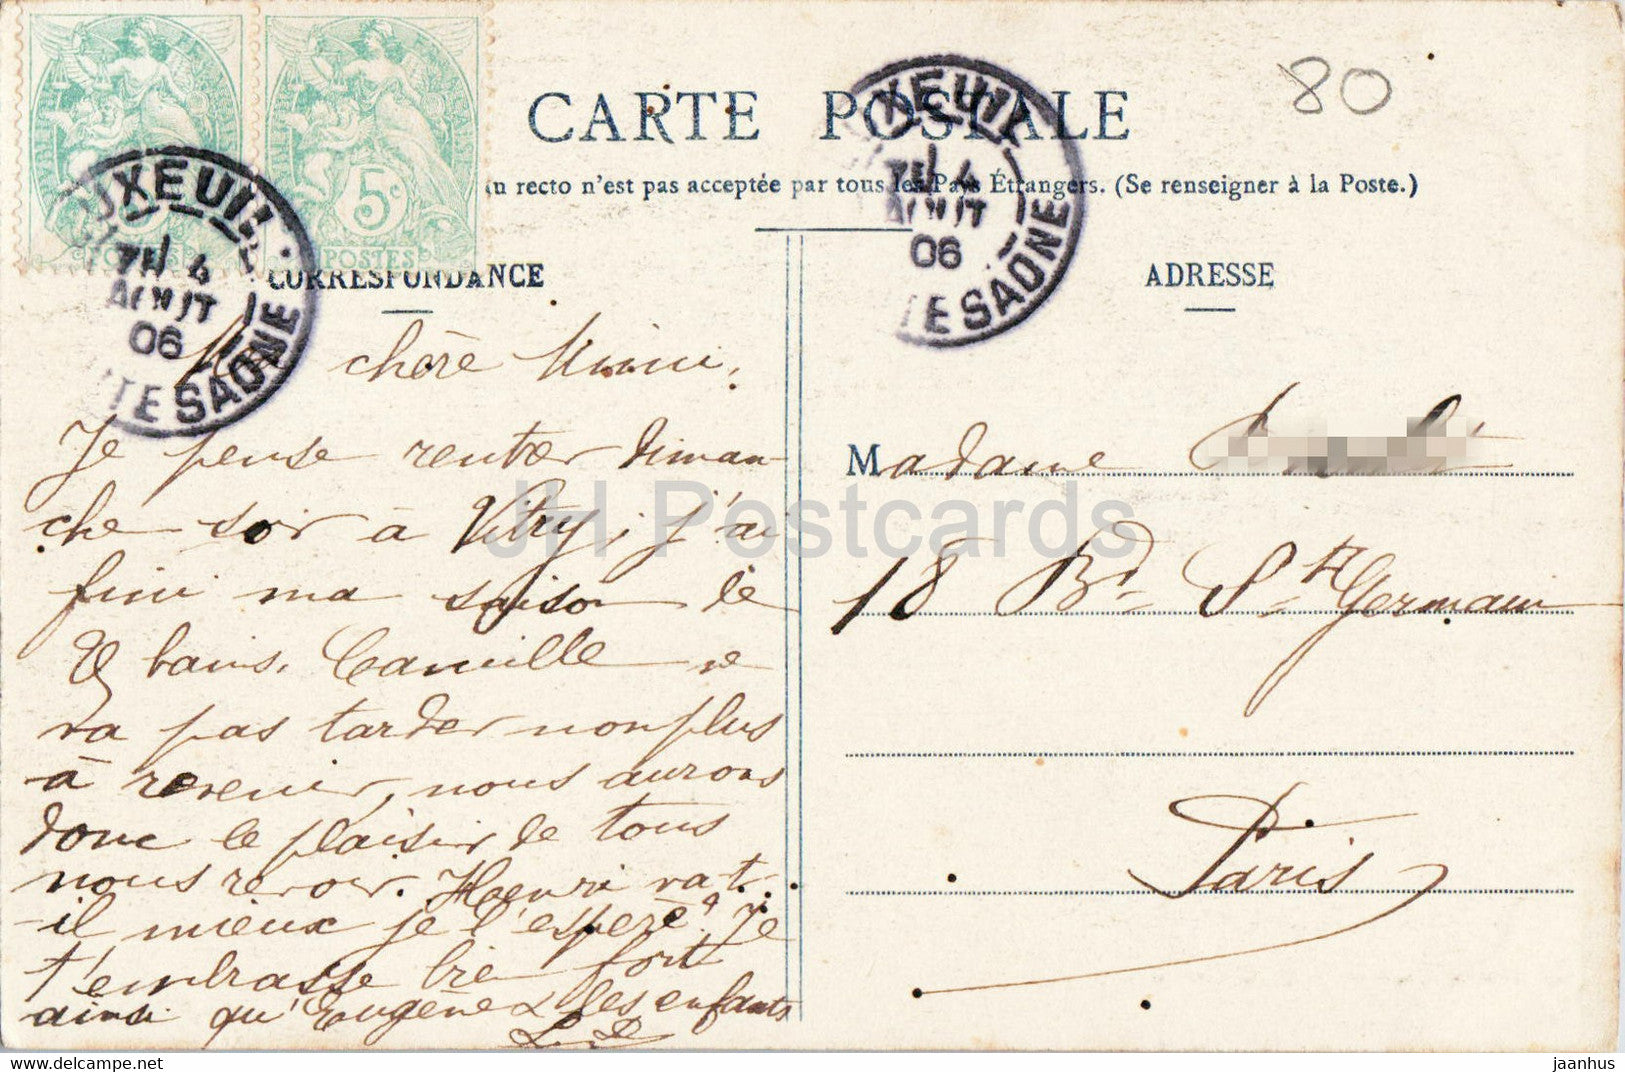 CARTE POSTALE
80
au recto n'est pas acceptée par tous les Pays Étrangers. (Se renseigner à la Poste.)
5c
POSTES
LUXEUIL
4
AOUT
06
HTE SAONE
LUXEUIL
4
AOUT
06
HTE SAONE
CORRESPONDANCE
Ma chère Mimi,
Je pense rentrer diman-
che soir à Vitry, j'ai
fini ma saison de
bains. Camille ne
va pas tarder non plus
à revenir, nous aurons
donc le plaisir de tous
nous revoir. Henri va-t-
-il mieux je l'espère? Je
t'embrasse bien fort
ainsi qu'Eugène & les enfants
ADRESSE
Madame
18 Bd St Germain
Paris
JH Postcards
jaanhus